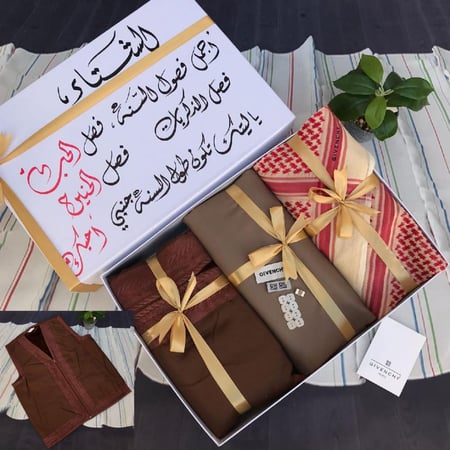 الشتاء،
أجمل فصول السنة، فصل الحب
فصل الذكريات فصل الحنين
ياليتك تكون طول السنة جنبي
أحبك
GIVENCHY
GIVENCHY
GIVENCHY
PARIS